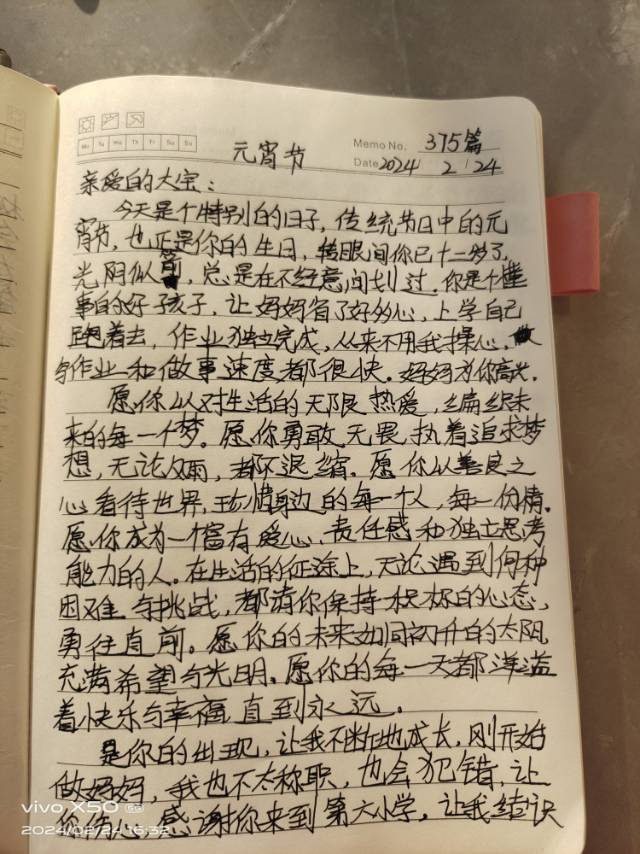 Mo Tu We Th Fr Sa Su
Memo No. 375篇
元宵节
Date 2024 / 2 / 24
亲爱的大宝：
今天是个特别的日子，传统节日中的元
宵节，也正是你的生日，转眼间你已十二岁了。
光阴似箭，总是在不经意间划过。你是个懂
事的好孩子，让妈妈省了好多心，上学自己
跑着去，作业独立完成，从来不用我操心，
写作业和做事速度都很快。妈妈为你高兴。
愿你以对生活的无限热爱，编织未
来的每一个梦。愿你勇敢无畏执着追求梦
想，无论风雨，都不退缩。愿你以善良之
心看待世界，珍惜身边的每一个人，每一份情。
愿你成为一个富有爱心、责任感和独立思考
能力的人。在生活的征途上，无论遇到何种
困难与挑战，都请你保持积极的心态，
勇往直前。愿你的未来如同初升的太阳
充满希望与光明。愿你的每一天都洋溢
着快乐与幸福直到永远。
是你的出现，让我不断地成长，刚开始
做妈妈，我也不太称职，也会犯错，让
你伤心，感谢你来到第六小学，让我结识
vivo X50 5G
2024/02/24 16:32